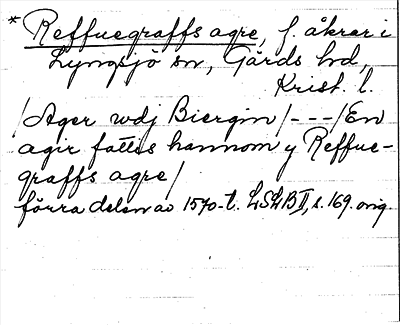 * Reffuegraffs agre, f. åkrar i
Lyngsjö sn, Gärds hd,
Krist. l.
/Ager wdj Biergin/---/En
agir fattis hannom y Reffue-
graffs agre/
förra delen av 1570-t. LSLB II, s. 169. orig.